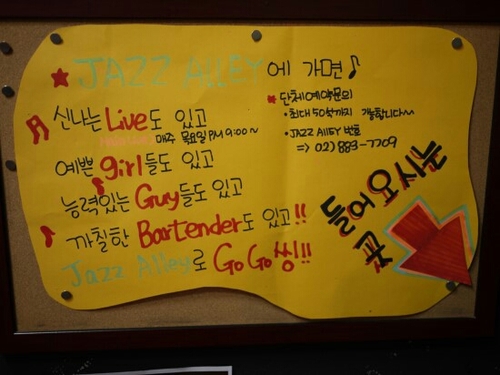 ★ JAZZ ALLEY에 가면♪
신나는 Live도 있고
매주 목요일 PM 9:00~
예쁜 girl들도 있고
능력있는 Guy들도 있고
까칠한 Bartender도 있고!!
Jazz Alley로 GoGo씽!!
★ 단체예약문의
• 최대 50석까지 가능합니다~
• JAZZ AllEY 번호
⇒ 02) 883-7709
들어오시는